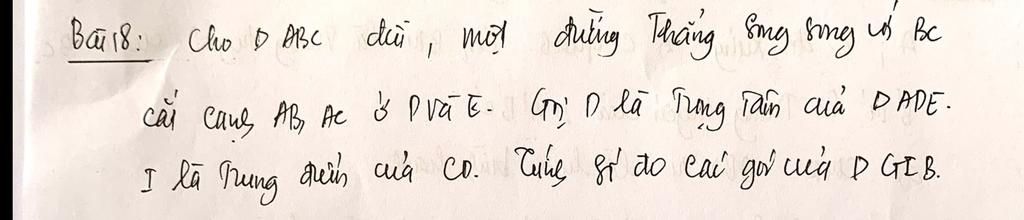 Bài 18: Cho D ABC đều, một đường thẳng song song với BC
cắt cạnh AB, AC ở D và E. Gọi D là trọng tâm của D ADE.
I là trung điểm của CD. Tính số đo các góc của D GIB.